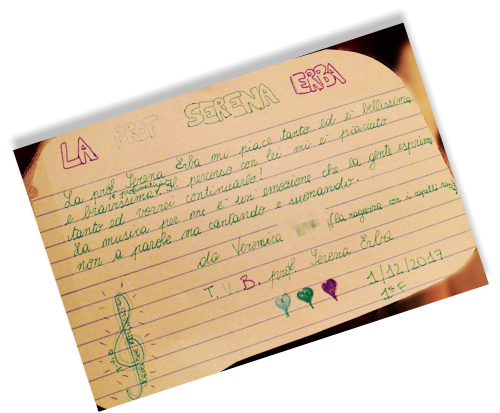 LA PROF SERENA ERBA
La prof. Serena Erba mi piace tanto ed è bellissima
e bravissima. Il percorso con lei mi è piaciuto
tanto ed vorrei continuarlo!
La musica per me è un'emozione che la gente esprime
non a parole ma cantando e suonando.
da Veronica (la ragazza con i capelli neri)
T. V. B. prof. Serena Erba
1/12/2017
1ª F